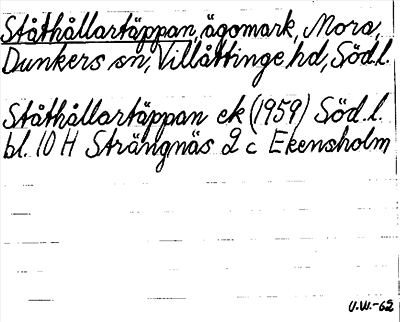 Ståthållartäppan, ägomark, Mora,
Dunkers sn, Villåttinge hd, Södl.
Ståthållartäppan ek (1959) Söd.l.
bl. 10 H Strängnäs 2 c Ekensholm
U.W.-62